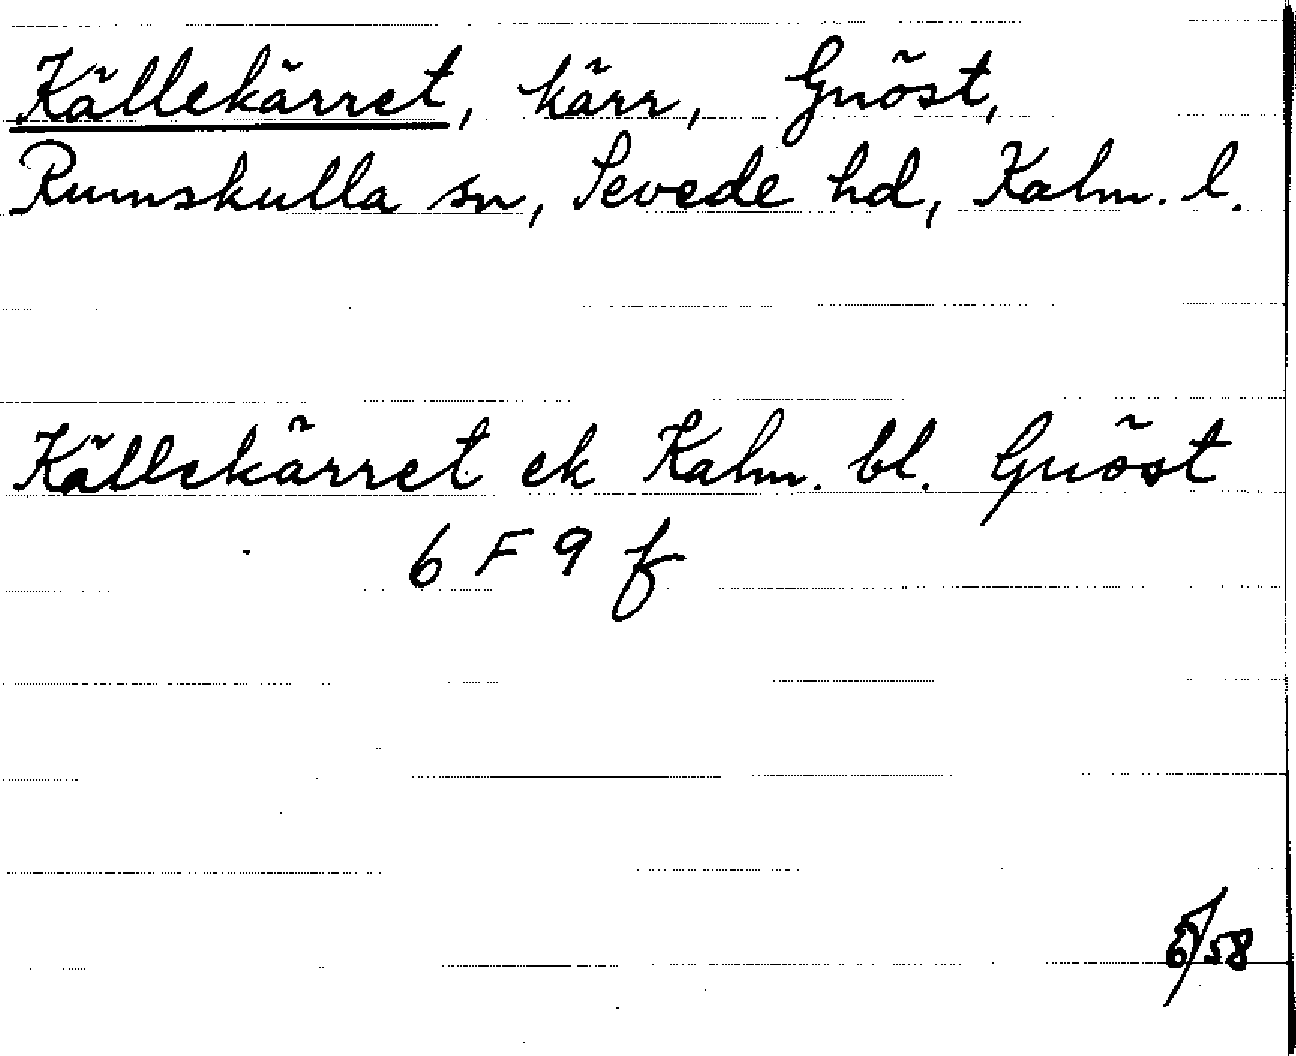 Källekärret, kärr, Gnöst,
Rumskulla sn, Sevede hd, Kalm. l.
Källekärret ek Kalm. bl. Gnöst
6 F 9 f
/58